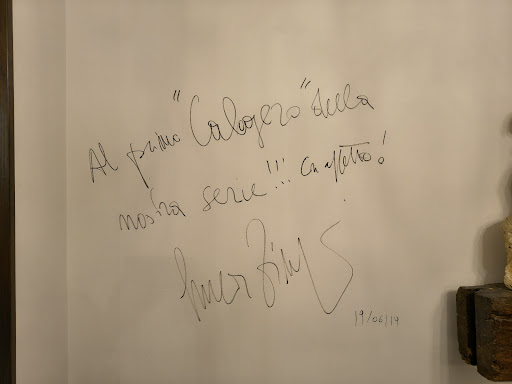 Al primo "Calogero" della
nostra serie!!! Con affetto!
19/06/19